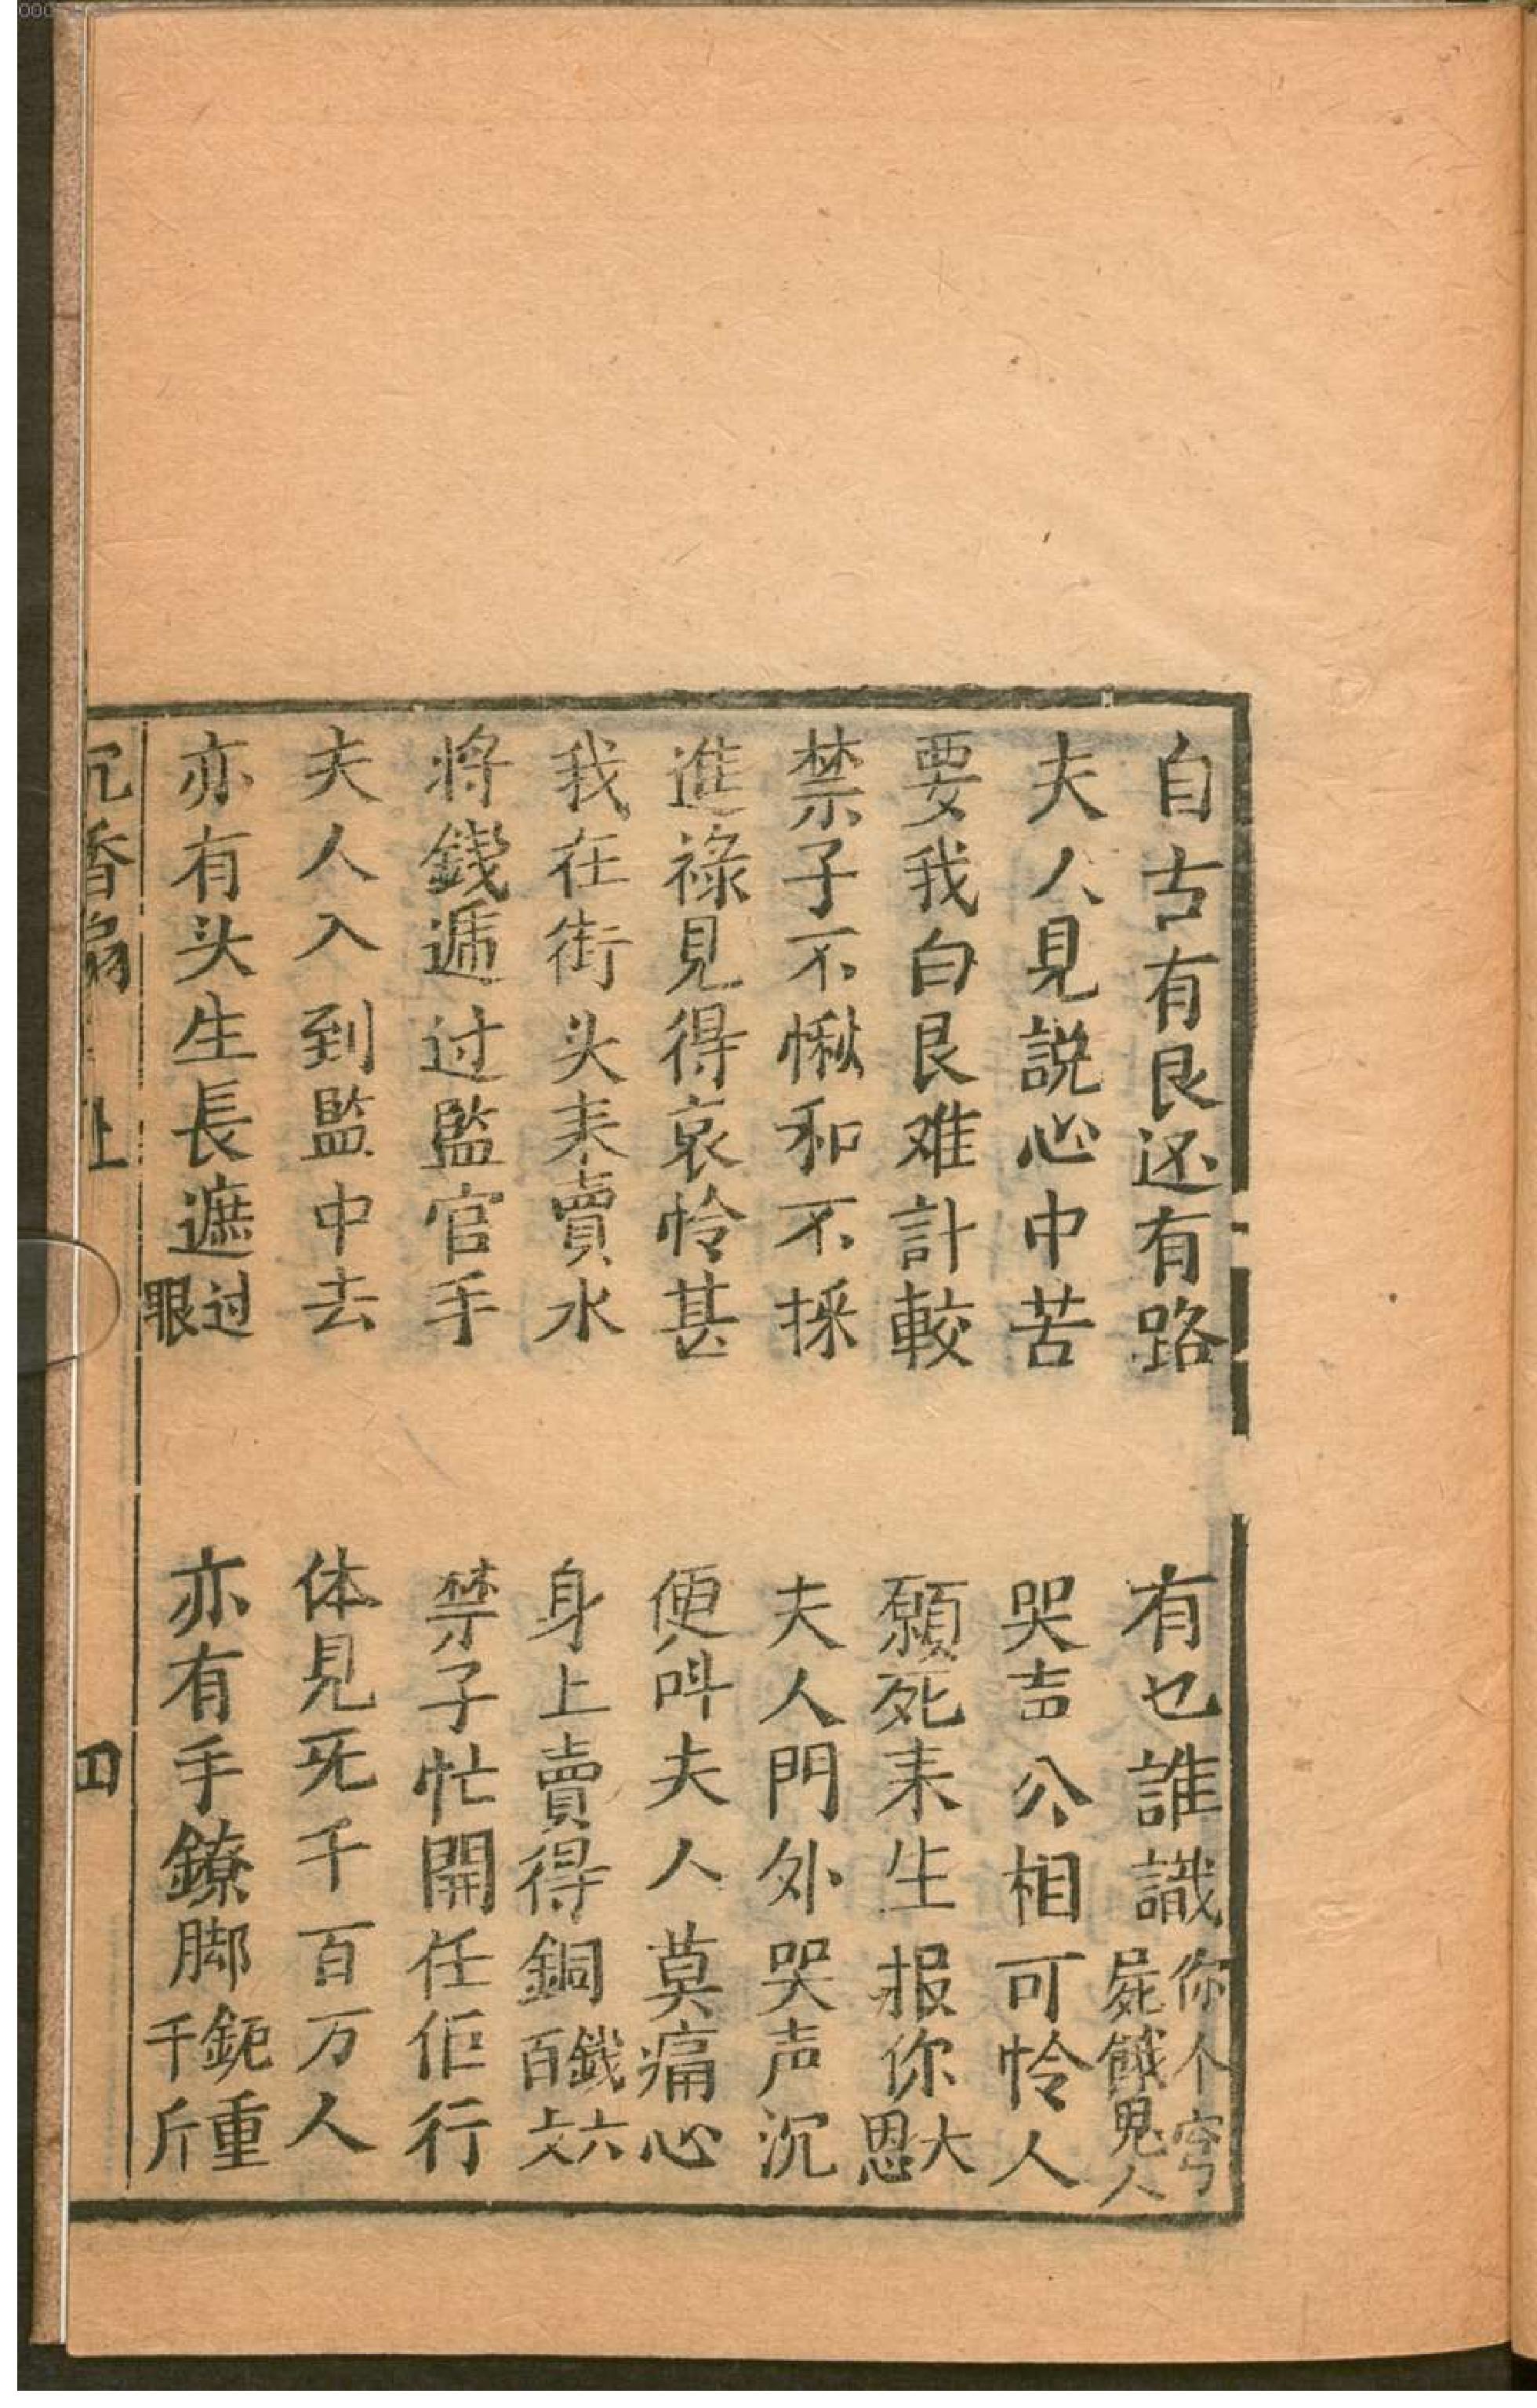 自古有艮还有路　有乜誰識你个穷屍餓鬼人
夫人見説心中苦　哭吉公相可怜人
要我白艮难計較　願死耒生报你大恩
禁子不愀和不採　夫人門外哭声沉
進祿見得哀怜甚　便呌夫人莫痛心
我在街头耒賣水　身上賣得銅錢六百文
将錢遞过監官手　禁子忙開任佢行
夫人入到監中去　体見旡千百万人
亦有头生長遮过眼　亦有手鐐脚鈪重千斤
沉香扇 上 四